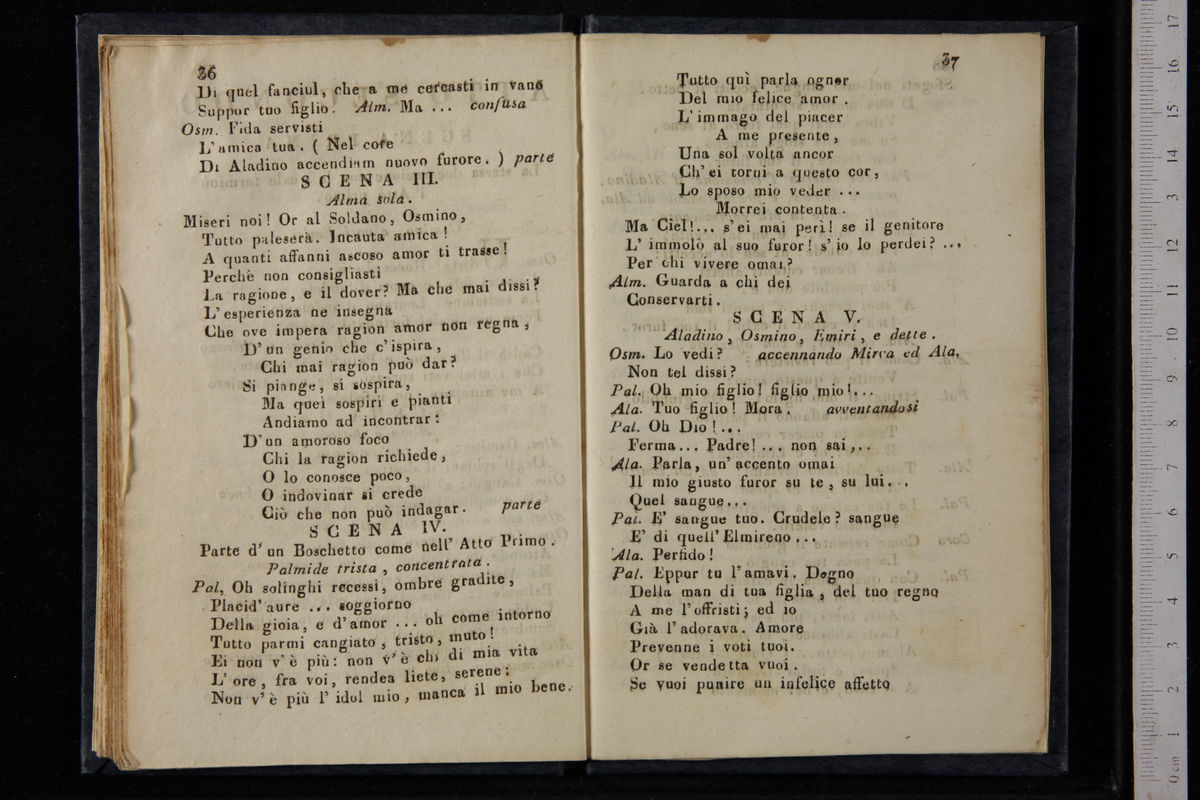 36
Di quel fanciul, che a me cercasti in vano
Suppor tuo figlio. Alm. Ma ... confusa
Osm. Fida servisti
L'amica tua. ( Nel core
Di Aladino accendiam nuovo furore. ) parte
SCENA III.
Alma sola.
Miseri noi! Or al Soldano, Osmino,
Tutto paleserà. Incauta amica!
A quanti affanni ascoso amor ti trasse!
Perchè non consigliasti
La ragione, e il dover? Ma che mai dissi?
L'esperienza ne insegna
Che ove impera ragion amor non regna,
D'un genio che c'ispira,
Chi mai ragion può dar?
Si piange, si sospira,
Ma quei sospiri e pianti
Andiamo ad incontrar:
D'un amoroso foco
Chi la ragion richiede,
O lo conosce poco,
O indovinar si crede
Ciò che non può indagar. parte
SCENA IV.
Parte d'un Boschetto come nell' Atto Primo.
Palmide trista, concentrata.
Pal, Oh solinghi recessi, ombre gradite,
Placid'aure ... soggiorno
Della gioia, e d'amor ... oh come intorno
Tutto parmi cangiato, tristo, muto!
Ei non v'è più: non v'è chi di mia vita
L'ore, fra voi, rendea liete, serene:
Non v'è più l'idol mio, manca il mio bene.
37
Tutto quì parla ognor
Del mio felice amor.
L'immago del piacer
A me presente,
Una sol volta ancor
Ch'ei torni a questo cor,
Lo sposo mio veder ...
Morrei contenta.
Ma Ciel!... s'ei mai perì! se il genitore
L'immolò al suo furor! s'io lo perdei? ...
Per chi vivere omai?
Alm. Guarda a chi dei
Conservarti.
SCENA V.
Aladino, Osmino, Emiri, e dette.
Osm. Lo vedi? accennando Mirva ed Ala.
Non tel dissi?
Pal. Oh mio figlio! figlio mio!...
Ala. Tuo figlio! Mora. avventandosi
Pal. Oh Dio!...
Ferma... Padre!... non sai...
Ala. Parla, un'accento omai
Il mio giusto furor su te, su lui...
Quel sangue...
Pal. E' sangue tuo. Crudele? sangue
E' di quell'Elmireno...
Ala. Perfido!
Pal. Eppur tu l'amavi. Degno
Della man di tua figlia, del tuo regno
A me l'offristi; ed io
Già l'adorava. Amore
Prevenne i voti tuoi.
Or se vendetta vuoi.
Se vuoi punire un infelice affetto